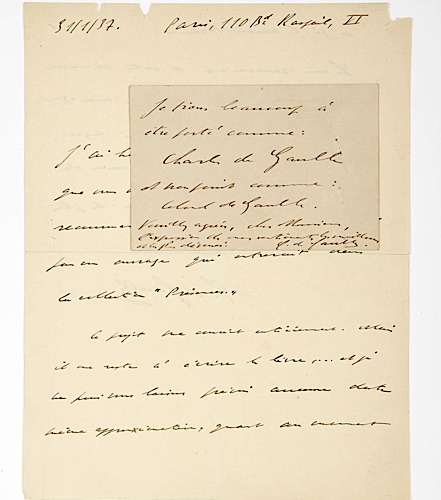 31/1/37. Paris, 110 Bd Raspail, VI
Je tiens beaucoup à
être porté comme :
Charles de Gaulle
et non point comme :
Colonel de Gaulle.
Veuillez agréer, cher Monsieur,
l'expression de mes sentiments
et les plus distingués. C. de Gaulle
J'ai
que vous
pas un ouvrage qui entrerait dans
la collection "Présences."
Le sujet me convient entièrement. Mais
il me reste à écrire le livre,... et je
ne puis vous laisser date
même approximative, quant au moment